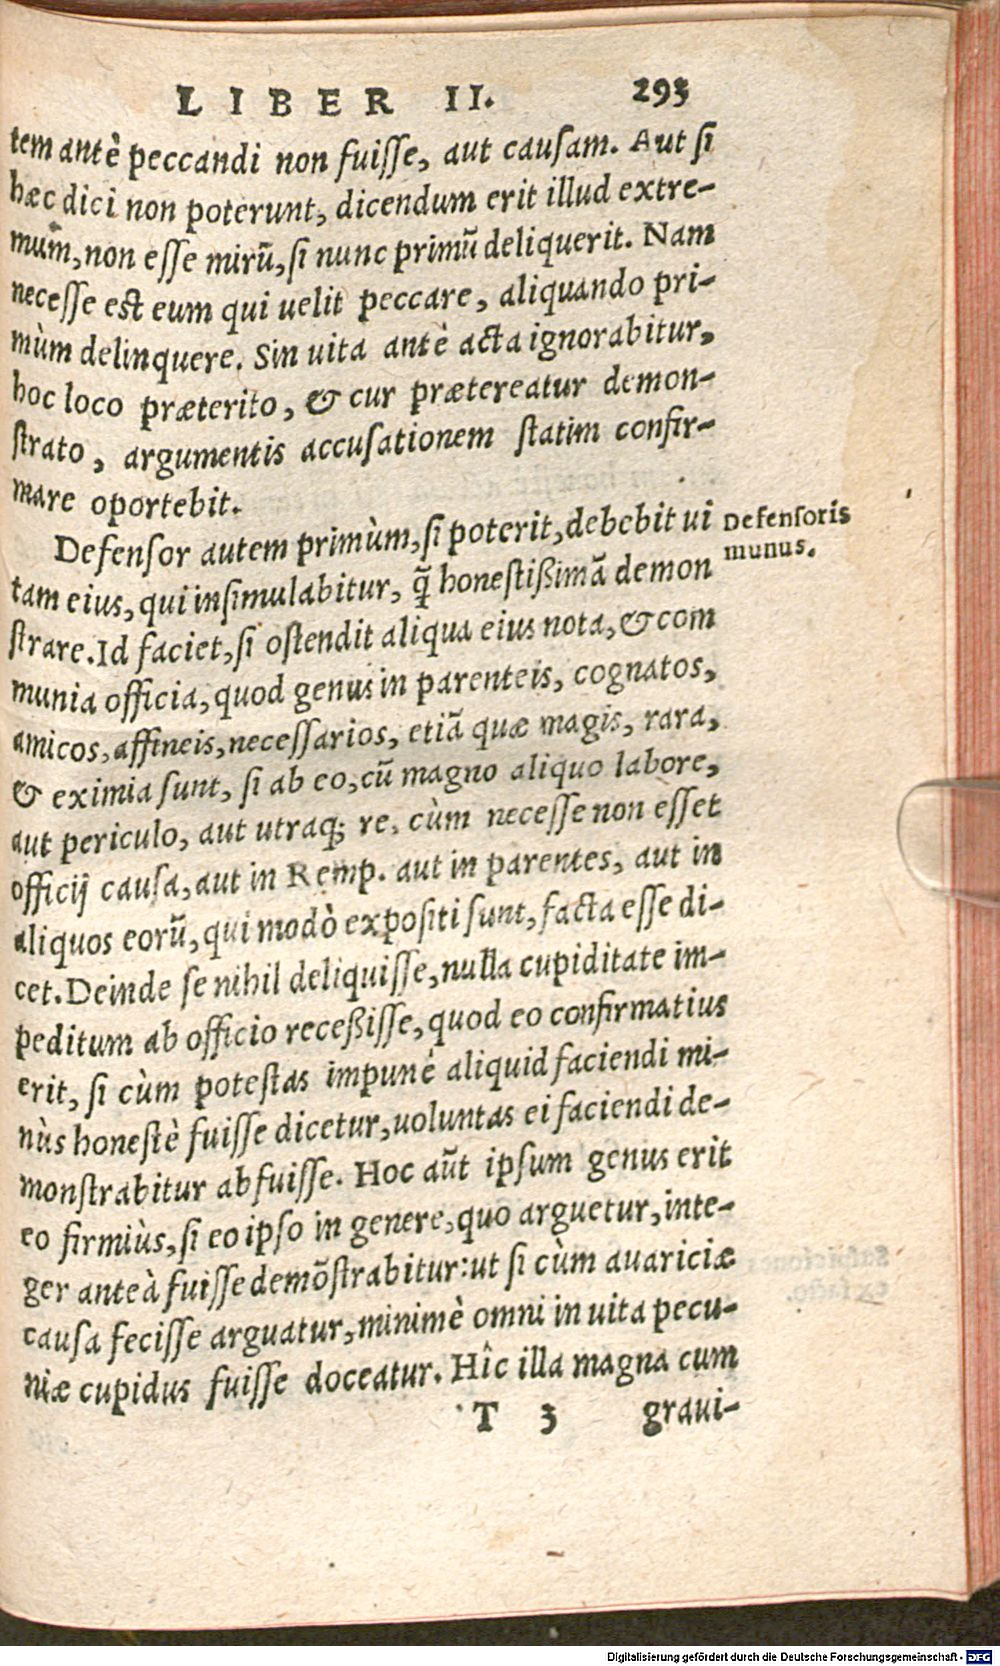 LIBER II. 293
tem antè peccandi non fuisse, aut causam. Aut si
hæc dici non poterunt, dicendum erit illud extre-
mum, non esse mirũ, si nunc primũ deliquerit. Nam
necesse est eum qui uelit peccare, aliquando pri-
mùm delinquere. Sin uita antè acta ignorabitur,
hoc loco præterito, & cur prætereatur demon-
strato, argumentis accusationem statim confir-
mare oportebit.
Defensor autem primùm, si poterit, debebit ui
Defensoris
munus.
tam eius, qui insimulabitur, q̃ honestißimã demon
strare. Id faciet, si ostendit aliqua eius nota, & com
munia officia, quod genus in parenteis, cognatos,
amicos, affineis, necessarios, etiã quæ magis, rara,
& eximia sunt, si ab eo, cũ magno aliquo labore,
aut periculo, aut utraq; re, cùm necesse non esset
officij causa, aut in Remp. aut in parentes, aut in
aliquos eorũ, qui modò expositi sunt, facta esse di-
cet. Deinde se nihil deliquisse, nulla cupiditate im-
peditum ab officio receßisse, quod eo confirmatius
erit, si cùm potestas impunè aliquid faciendi mi-
nùs honestè fuisse dicetur, uoluntas ei faciendi de-
monstrabitur abfuisse. Hoc aũt ipsum genus erit
eo firmiùs, si eo ipso in genere, quo arguetur, inte-
ger anteà fuisse demõstrabitur: ut si cùm auariciæ
causa fecisse arguatur, minimè omni in uita pecu-
niæ cupidus fuisse doceatur. Hîc illa magna cum
T 3 graui-
Digitalisierung gefördert durch die Deutsche Forschungsgemeinschaft - DFG